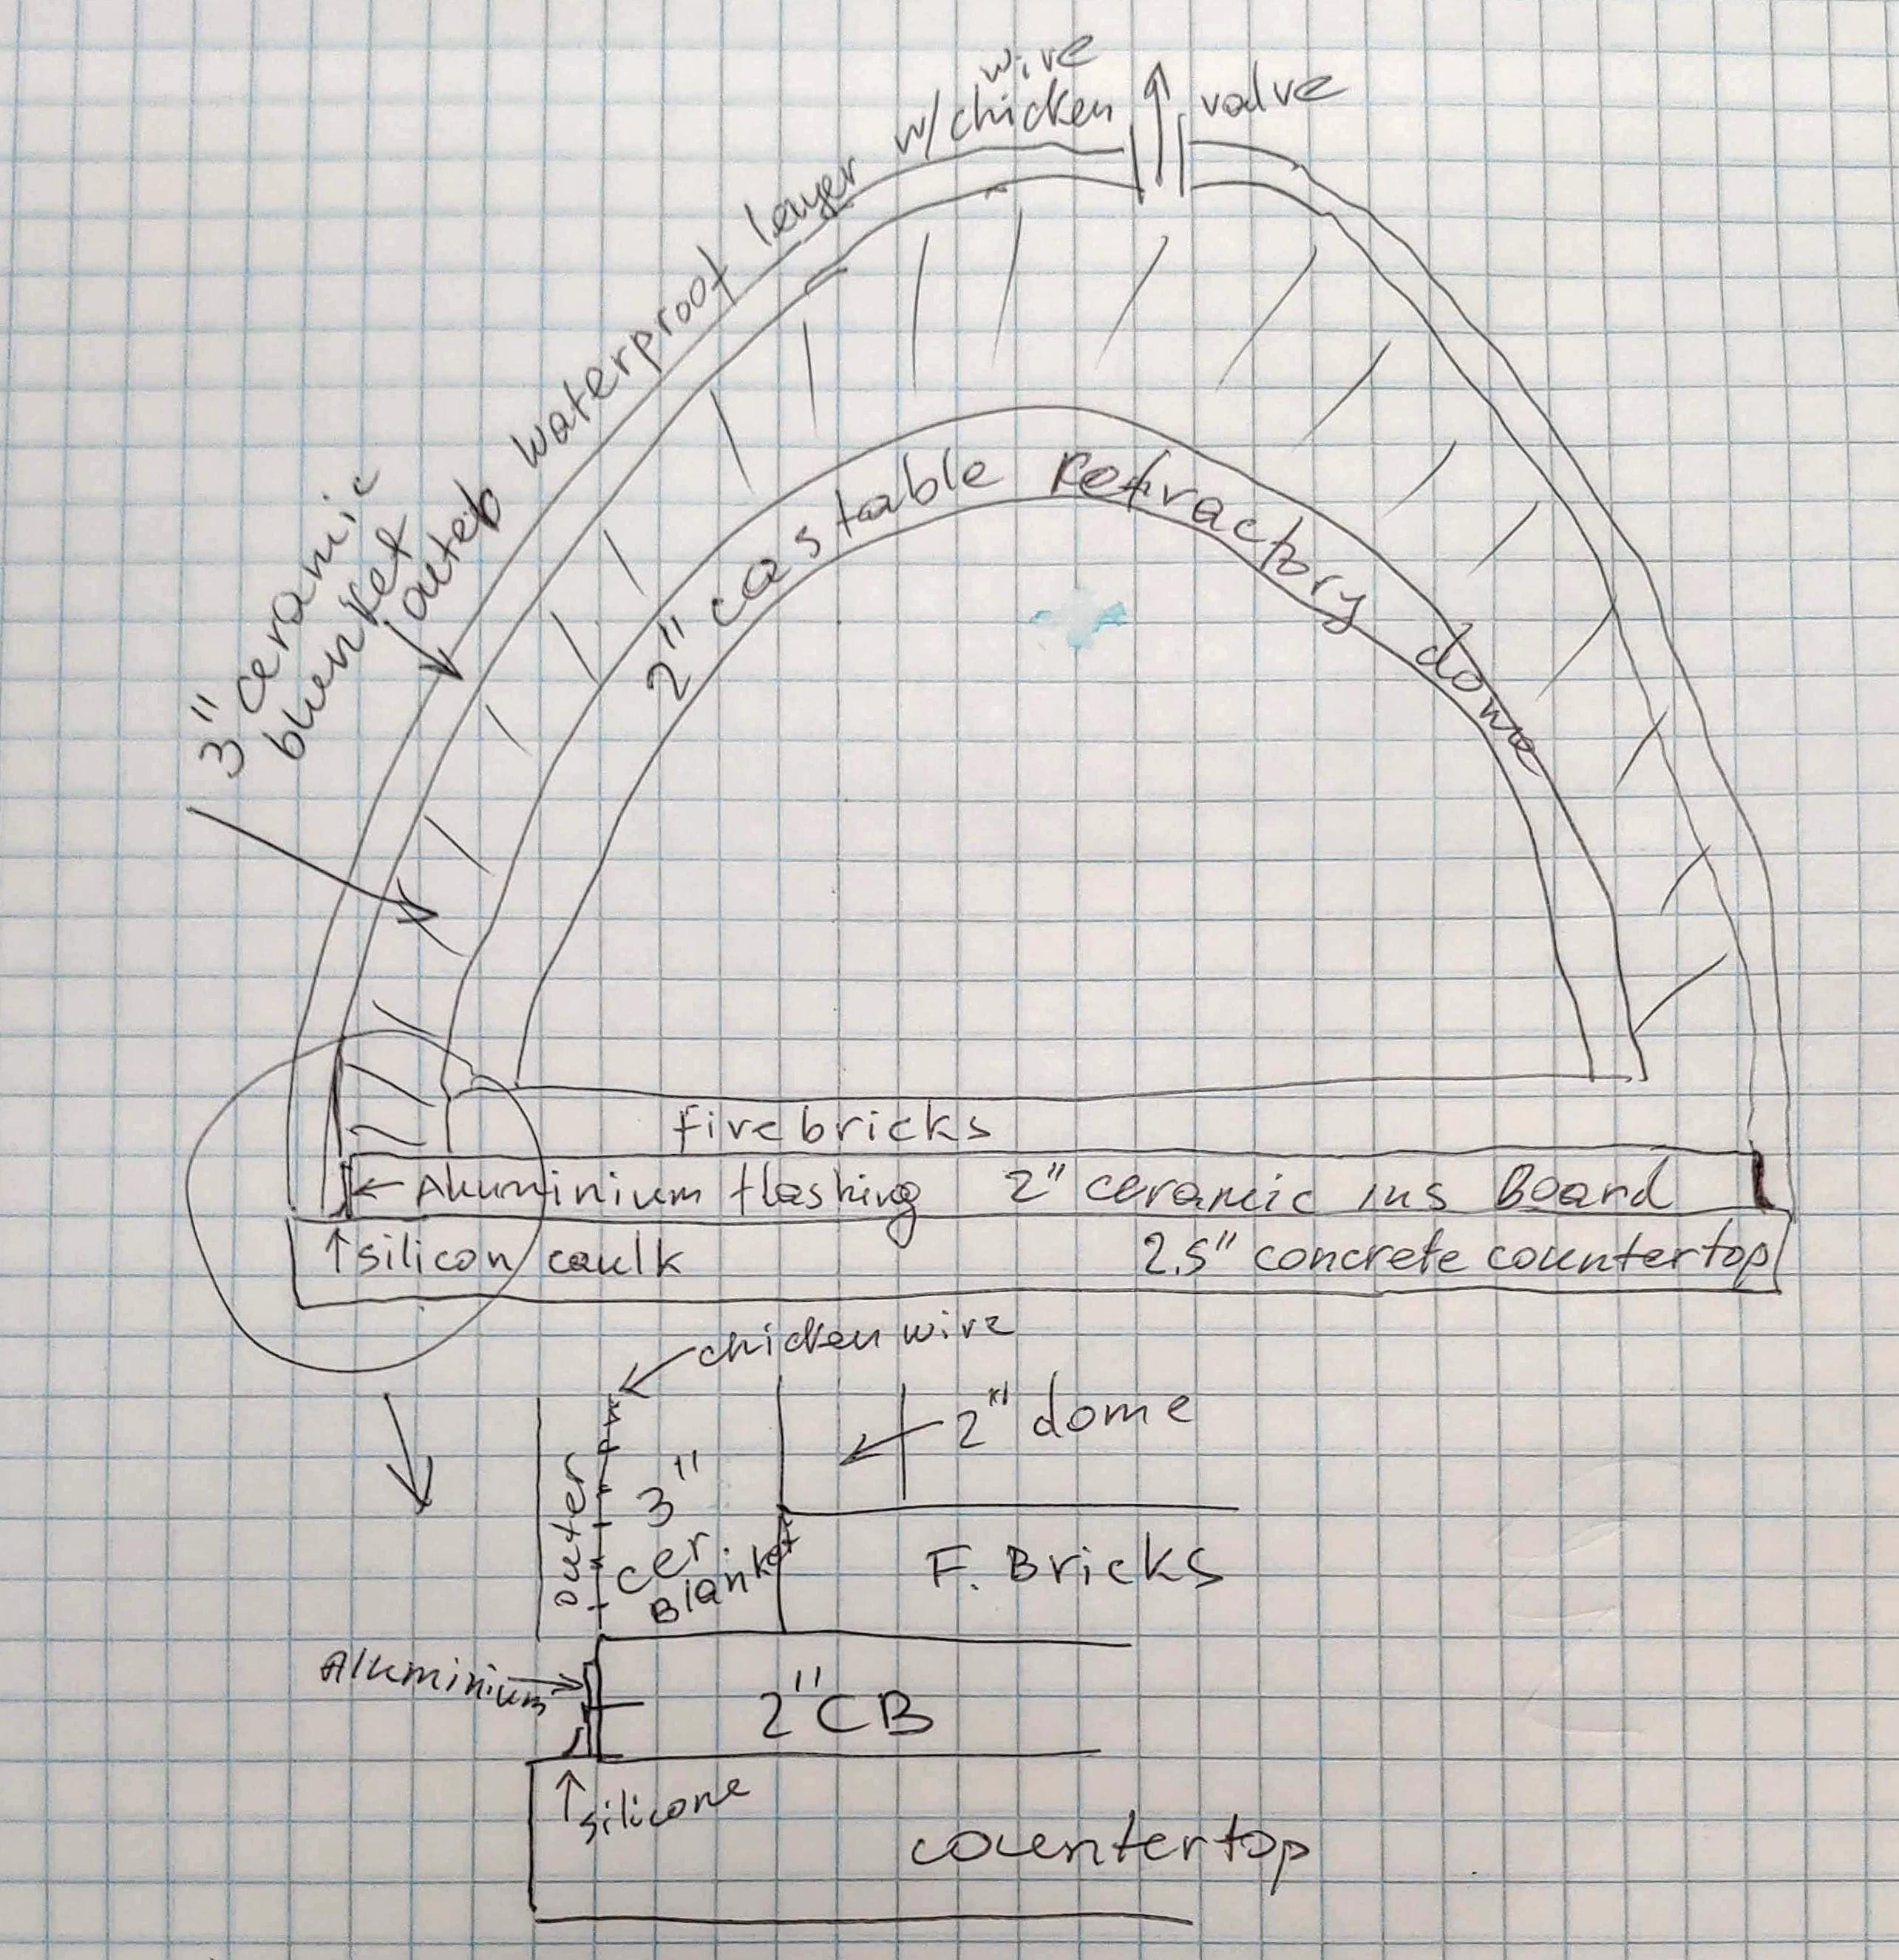 wire
w/ chicken
valve
outer waterproof layer
3" ceramic
blanket
2" castable refractory dome
firebricks
← Aluminium flashing
2" ceramic ins Board
↑ silicon caulk
2.5" concrete countertop
chicken wire
2" dome
outer
3"
cer.
Blanket
F. Bricks
Aluminium
2" CB
↑ silicone
countertop